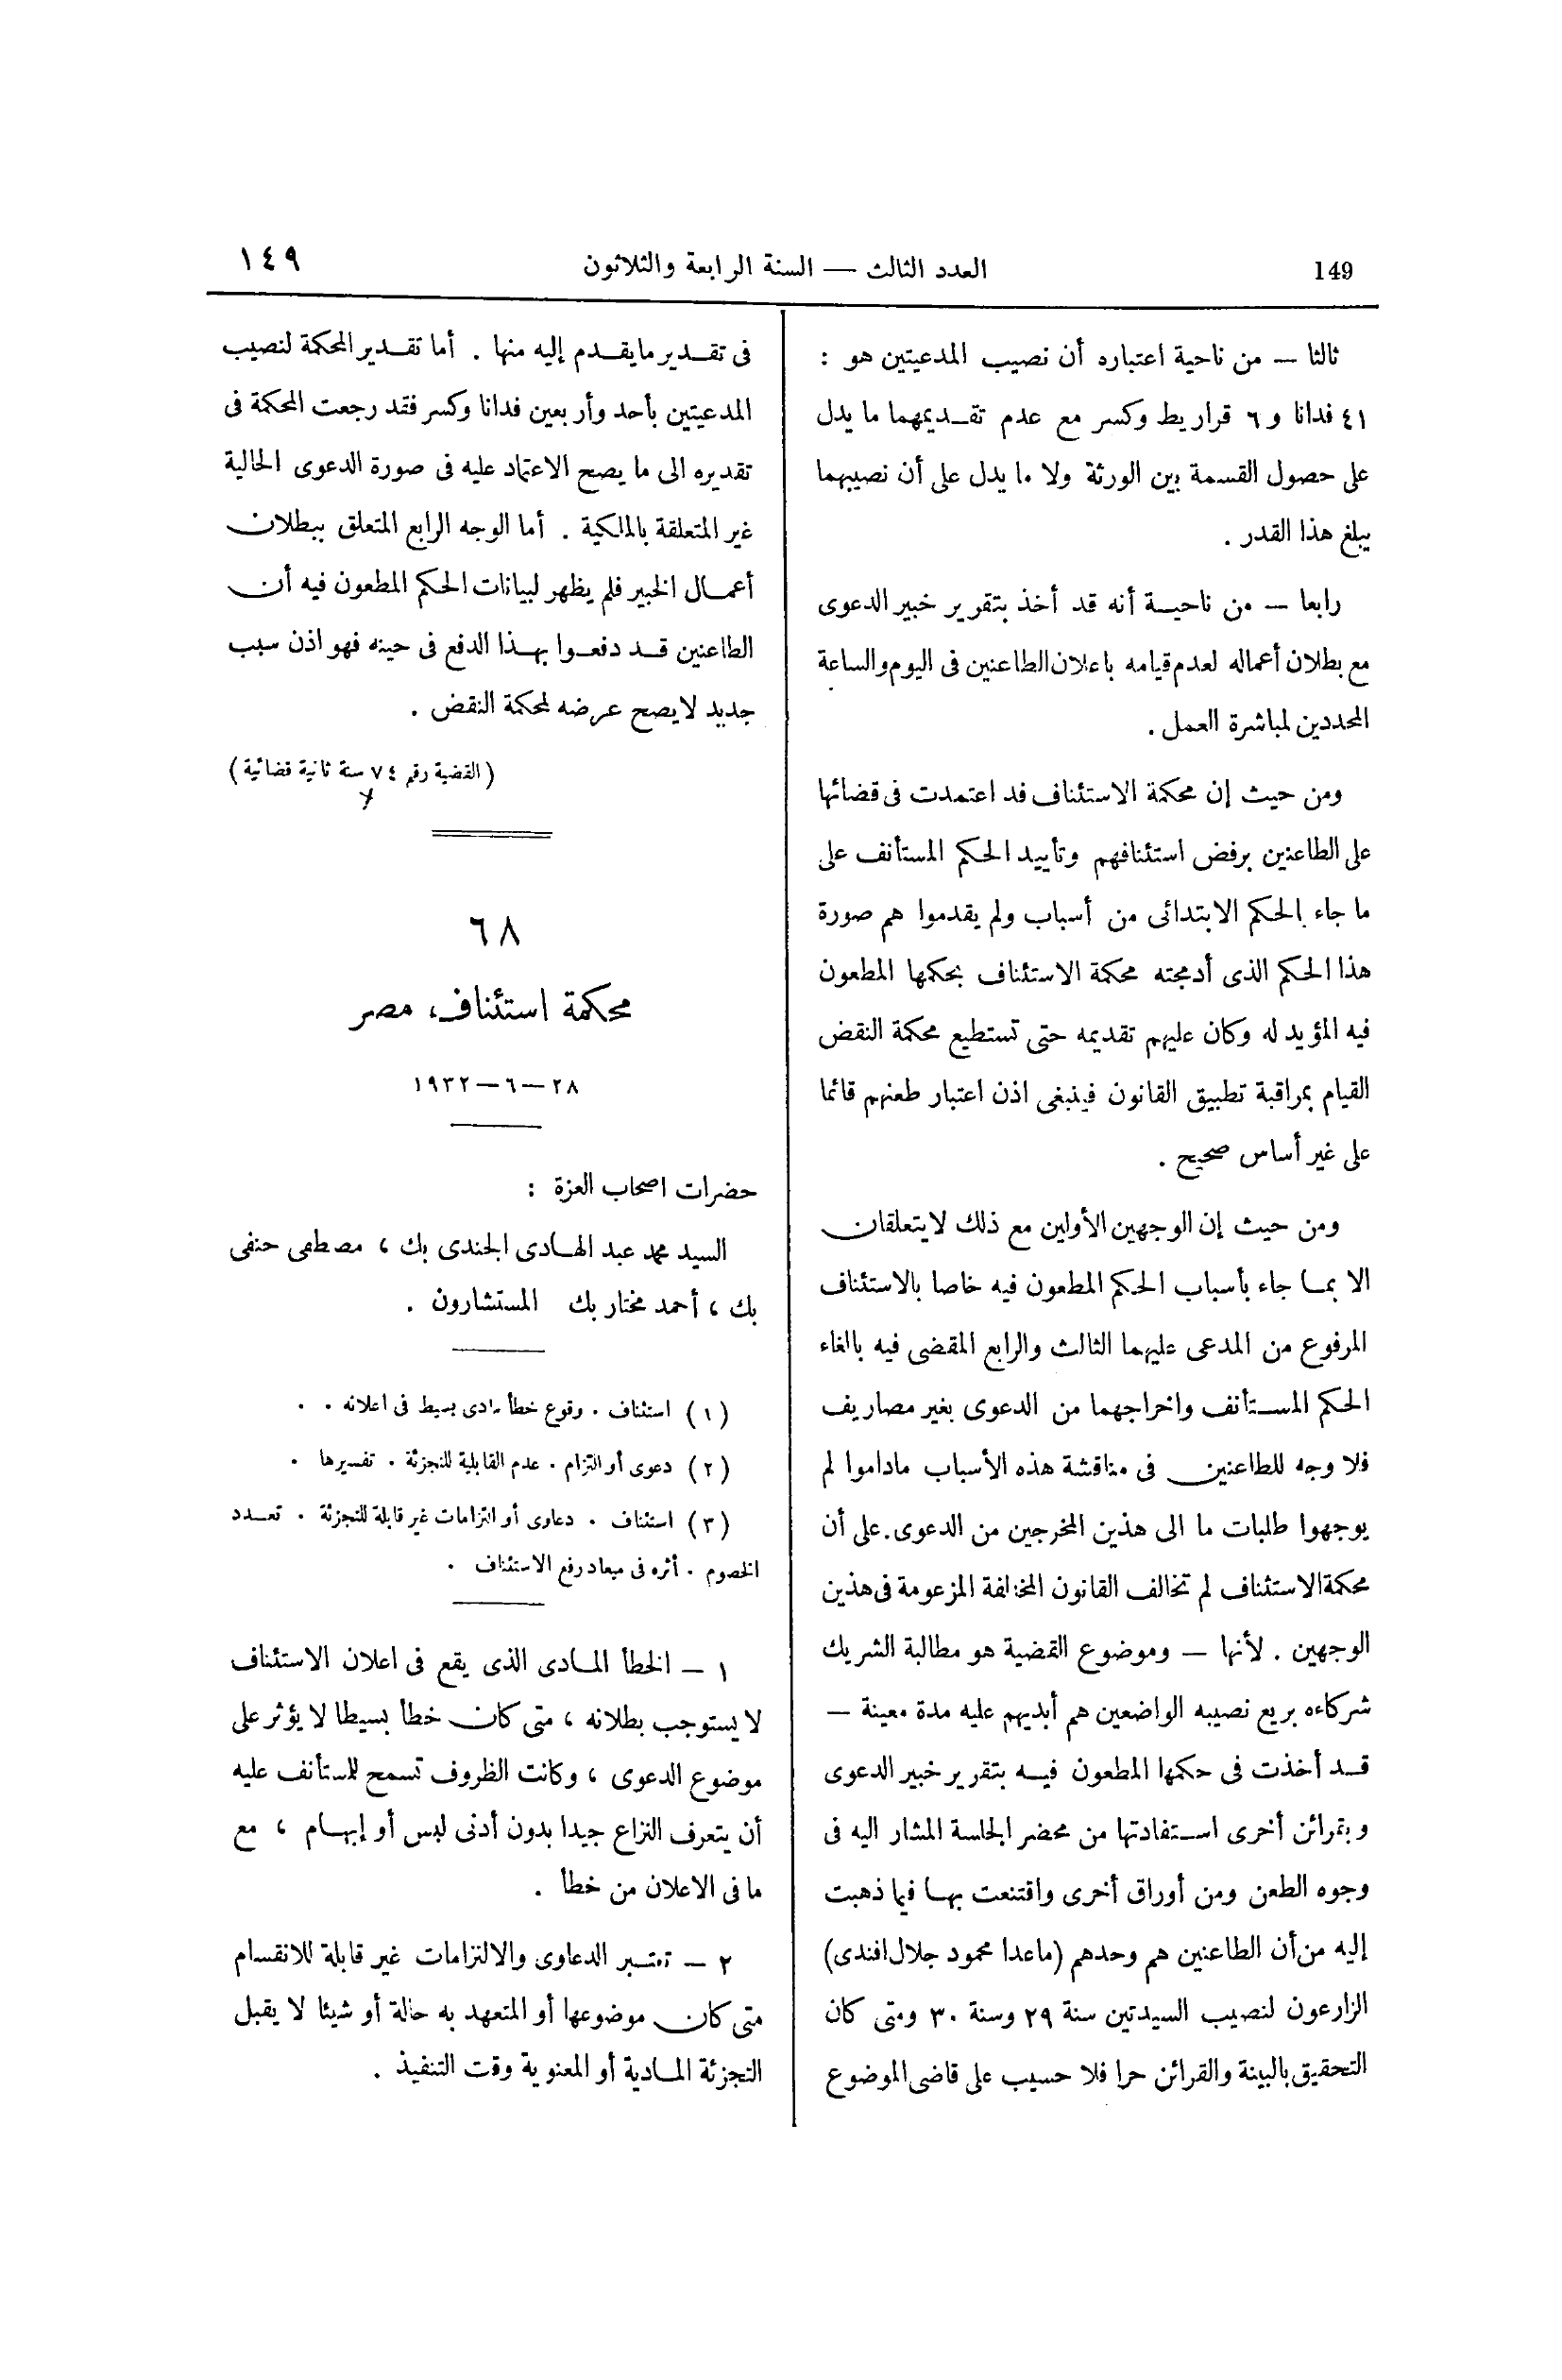 149
العدد الثالث — السنة الرابعة والثلاثون
١٤٩
ثالثا — من ناحية اعتباره أن نصيب المدعيتين هو :
٤١ فدانا و ٦ قراريط وكسر مع عدم تقديمهما ما يدل
على حصول القسمة بين الورثة ولا ما يدل على أن نصيبهما
يبلغ هذا القدر .
رابعا — من ناحية أنه قد أخذ بتقرير خبير الدعوى
مع بطلان أعماله لعدم قيامه باعلان الطاعنين فى اليوم والساعة
المحددين لمباشرة العمل .
ومن حيث إن محكمة الاستئناف قد اعتمدت فى قضائها
على الطاعنين برفض استئنافهم وتأييد الحكم المستأنف على
ما جاء بالحكم الابتدائى من أسباب ولم يقدموا هم صورة
هذا الحكم الذى أدمجته محكمة الاستئناف بحكمها المطعون
فيه المؤيد له وكان عليهم تقديمه حتى تستطيع محكمة النقض
القيام بمراقبة تطبيق القانون فينبغى اذن اعتبار طعنهم قائما
على غير أساس صحيح .
ومن حيث إن الوجهين الأولين مع ذلك لا يتعلقان
الا بما جاء بأسباب الحكم المطعون فيه خاصا بالاستئناف
المرفوع من المدعى عليهما الثالث والرابع المقضى فيه بالغاء
الحكم المستأنف واخراجهما من الدعوى بغير مصاريف
فلا وجه للطاعنين فى مناقشة هذه الأسباب ماداموا لم
يوجهوا طلبات ما الى هذين المخرجين من الدعوى. على أن
محكمة الاستئناف لم تخالف القانون المخالفة المزعومة فى هذين
الوجهين . لأنها — وموضوع القضية هو مطالبة الشريك
شركاءه بريع نصيبه الواضعين هم أيديهم عليه مدة معينة —
قد أخذت فى حكمها المطعون فيه بتقرير خبير الدعوى
وبقرائن أخرى استفادتها من محضر الجلسة المشار اليه فى
وجوه الطعن ومن أوراق أخرى واقتنعت بها فيما ذهبت
إليه من أن الطاعنين هم وحدهم (ماعدا محمود جلال افندى)
الزارعون لنصيب السيدتين سنة ٢٩ وسنة ٣٠ ومتى كان
التحقيق بالبينة والقرائن حرا فلا حسيب على قاضى الموضوع
فى تقدير ما يقدم إليه منها . أما تقدير المحكمة لنصيب
المدعيتين بأحد وأربعين فدانا وكسر فقد رجعت المحكمة فى
تقديره الى ما يصح الاعتماد عليه فى صورة الدعوى الحالية
غير المتعلقة بالملكية . أما الوجه الرابع المتعلق ببطلان
أعمال الخبير فلم يظهر لبيانات الحكم المطعون فيه أن
الطاعنين قد دفعوا بهذا الدفع فى حينه فهو اذن سبب
جديد لا يصح عرضه لمحكمة النقض .
( القضية رقم ٧٤ سنة ثانية قضائية )
٦٨
محكمة استئناف، مصر
٢٨ — ٦ — ١٩٣٢
حضرات اصحاب العزة :
السيد محمد عبد الهادى الجندى بك ، مصطفى حنفى
بك ، أحمد مختار بك المستشارون .
(١) استئناف . وقوع خطأ مادى بسيط فى اعلانه . .
(٢) دعوى أو التزام . عدم القابلية للتجزئة . تفسيرها .
(٣) استئناف . دعاوى أو التزامات غير قابلة للتجزئة . تعدد
الخصوم . أثره فى ميعاد رفع الاستئناف .
١ — الخطأ المادى الذى يقع فى اعلان الاستئناف
لا يستوجب بطلانه ، متى كان خطأ بسيطا لا يؤثر على
موضوع الدعوى ، وكانت الظروف تسمح للمستأنف عليه
أن يتعرف النزاع جيدا بدون أدنى لبس أو إبهام ، مع
ما فى الاعلان من خطأ .
٢ — تعتبر الدعاوى والالتزامات غير قابلة للانقسام
متى كان موضوعها أو المتعهد به حالة أو شيئا لا يقبل
التجزئة المادية أو المعنوية وقت التنفيذ .